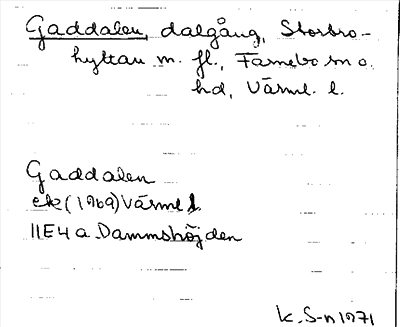 Gaddalen, dalgång, Storbro-
hyttan m. fl., Färnebo sn o.
hd, Värml. l.
Gaddalen
ek (1969) Värml l
11E4a Dammshöjden
K. S-n 1971